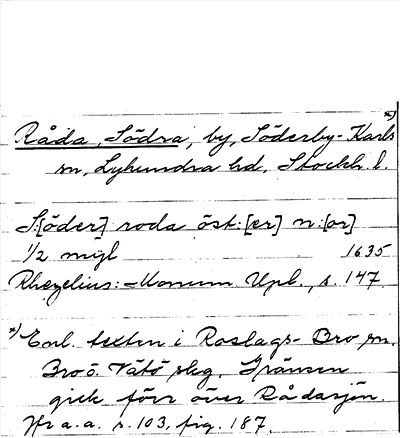 x)
Råda, Södra, by, Söderby-Karls
sn, Lyhundra hd, Stockh. l.
S:[öder] roda öst:[er] n:[or]
1/2 mijl 1635
Rhezelius: Monum. Upl., s. 147.
x) Enl. texten i Roslags-Bro sn,
Bro o. Vätö skg. Gränsen
gick förr över Rådasjön.
Jfr a.a. s. 103, fig. 187.